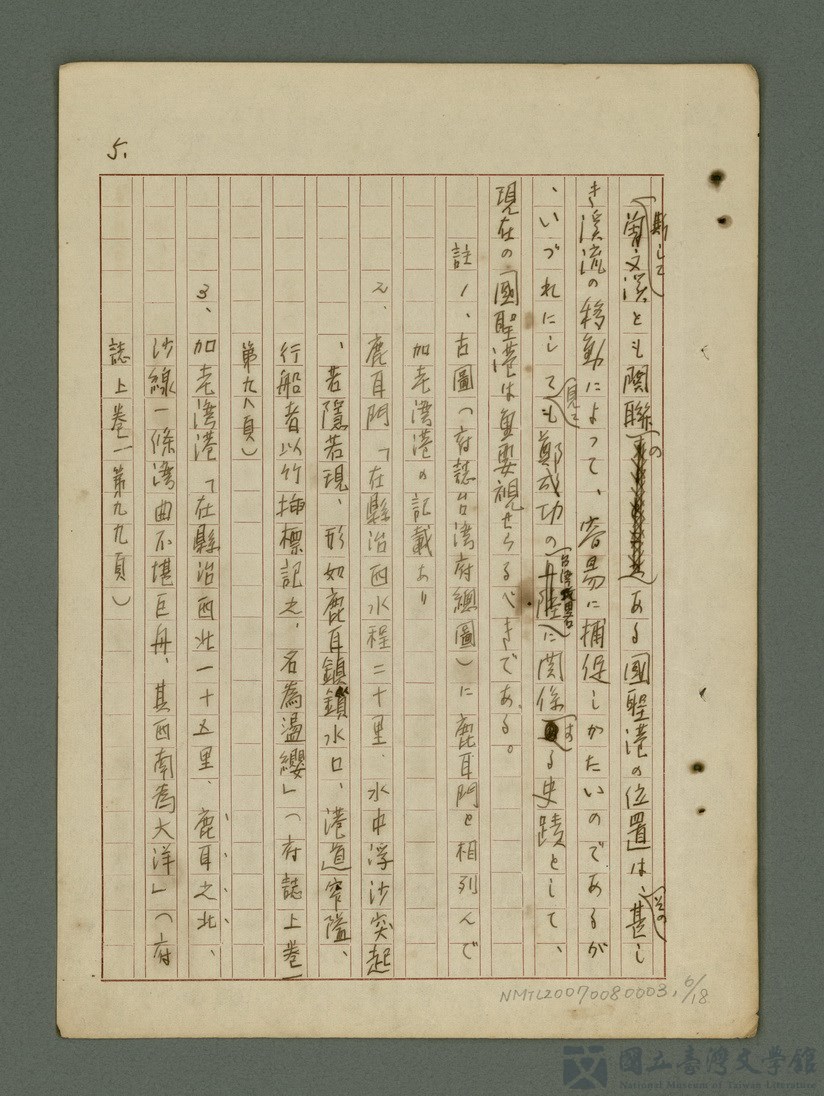 5.
斯して
曽文溪とも関聯のある國聖港の位置は、その甚し
き溪流の移動によって、容易に捕促しかたいのであるが
、いづれにして見ても鄭成功の台湾攻畧に関係する史蹟として、
現在の國聖港は重要視せらるべきである。
註1、古圖(府誌台湾府總圖)に鹿耳門と相列んで
加老湾港の記載あり
2、鹿耳門「在縣治西水程二十里、水中浮沙突起
、若隱若現、形如鹿耳鎮鎖水口、港道窄隘、
行船者以竹挿標記之、名為盪纓」(府誌上卷一
第九八頁)
3、加老湾港「在縣治西北一十五里、鹿耳之北、
沙線一條湾曲不堪巨舟、其西南為大洋」(府
誌上卷一第九九頁)
NMTL20070080003, 6/18
國立臺灣文學館
National Museum of Taiwan Literature